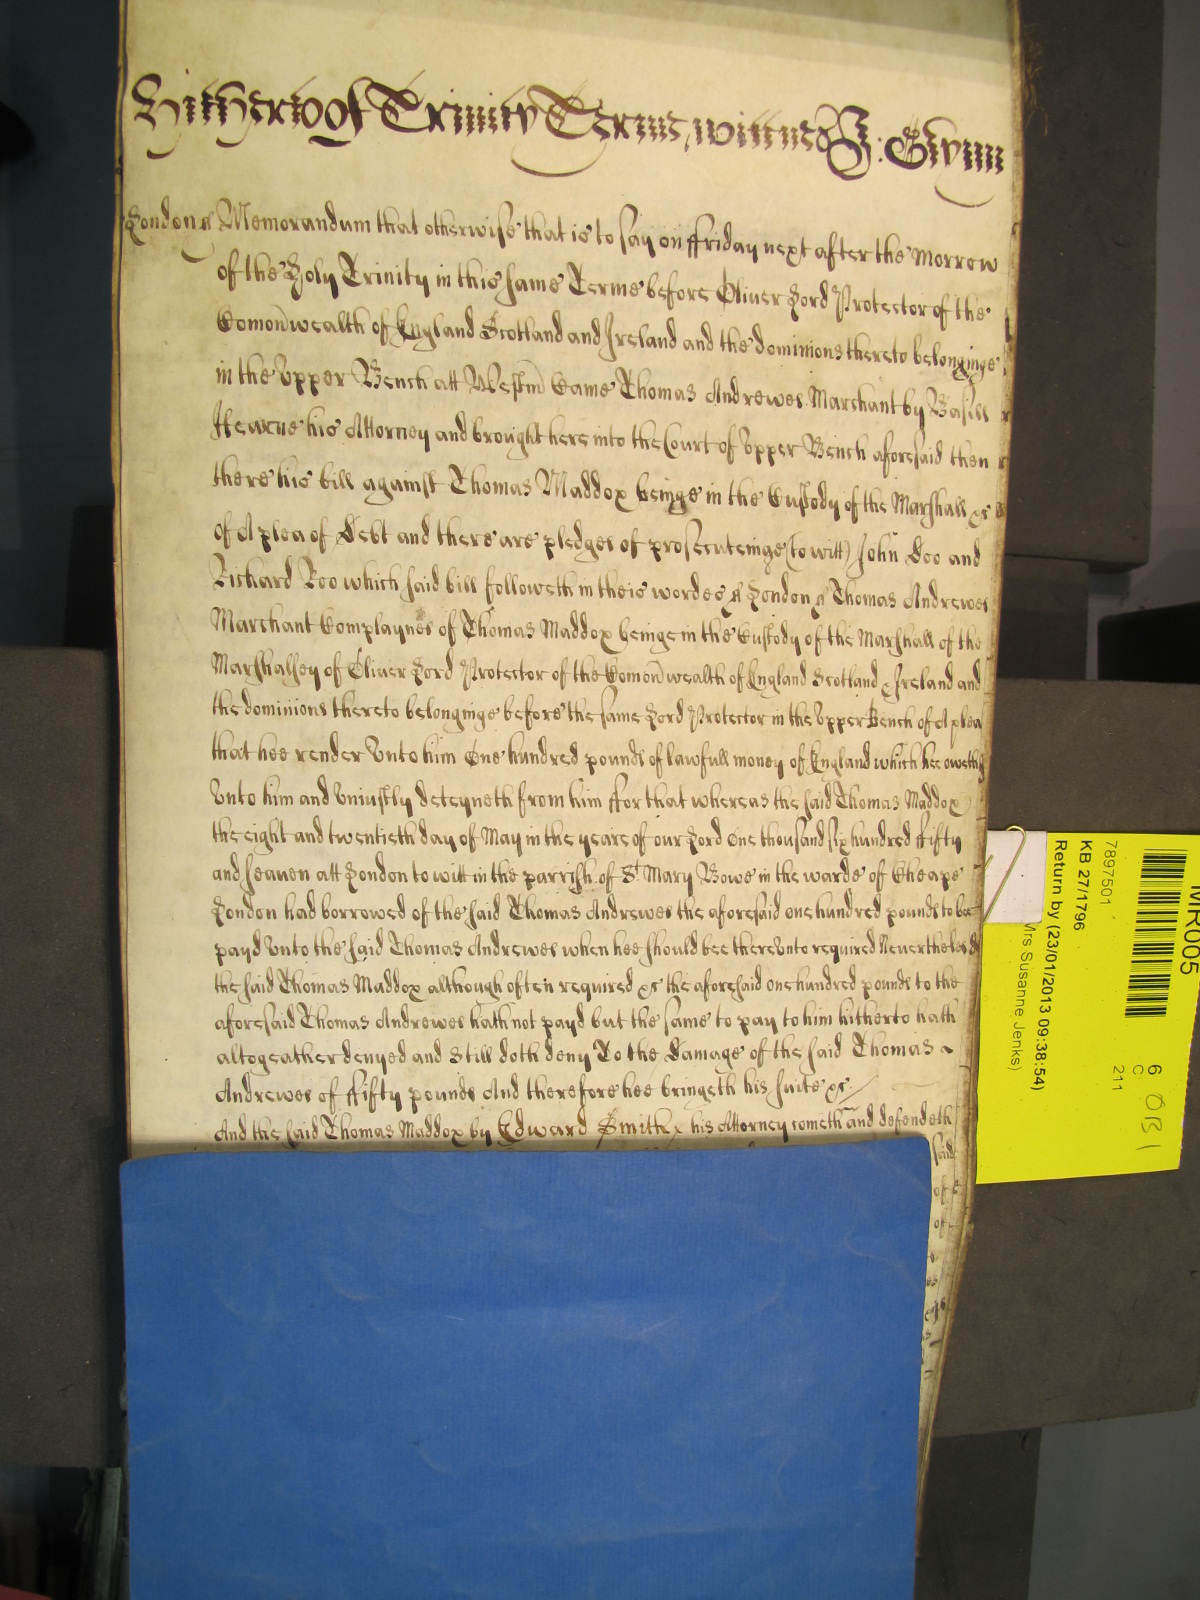 Hitherto of Trinity Terme, wittnes J: Glynn
London ss Memorandum that otherwise that is to say on ffriday next after the Morrow
of the Holy Trinity in this same Terme before Oliver Lord Protector of the
Comonwealth of England Scotland and Ireland and the dominions thereto belonginge
in the Upper Bench att Westm Came Thomas Andrewes Marchant by Basill
Hearne his Attorney and brought here into the Court of Upper Bench aforesaid then
there his bill against Thomas Maddox beinge in the Custody of the Marshall &c
of A plea of Debt and there are pledges of prosecuteinge (to witt) John Doo and
Richard Roo which said bill followeth in theis wordes ss London ss Thomas Andrewes
Marchant Complaynes of Thomas Maddox beinge in the Custody of the Marshall of the
Marshalsey of Oliver Lord Protector of the Comonwealth of England Scotland & Ireland and
the dominions thereto belonginge before the same Lord Protector in the Upper Bench of A plea
that hee render Unto him One hundred pounds of lawfull money of England which hee oweth
Unto him and Uniustly deteyneth from him ffor that whereas the said Thomas Maddox
the eight and twentieth day of May in the yeare of our Lord One thousand six hundred ffifty
and seaven att London to witt in the parrish of St Mary Bowe in the warde of Cheape
London had borrowed of the said Thomas Andrewes the aforesaid one hundred pounds to bee
payd Unto the said Thomas Andrewes when hee should bee thereUnto required Neverthelesse
the said Thomas Maddox although often required &c the aforesaid one hundred pounds to the
aforesaid Thomas Andrewes hath not payd but the same to pay to him hitherto hath
altogeather denyed and still doth deny To the Damage of the said Thomas
Andrewes of ffifty pounds And therefore hee bringeth his suite &c
And the said Thomas Maddox by Edward Smith his Attorney cometh and defendeth
said
of
of
MR005
7897501
KB 27/1796
Return by (23/01/2013 09:38:54)
Mrs Susanne Jenks)
6
C
211
0131